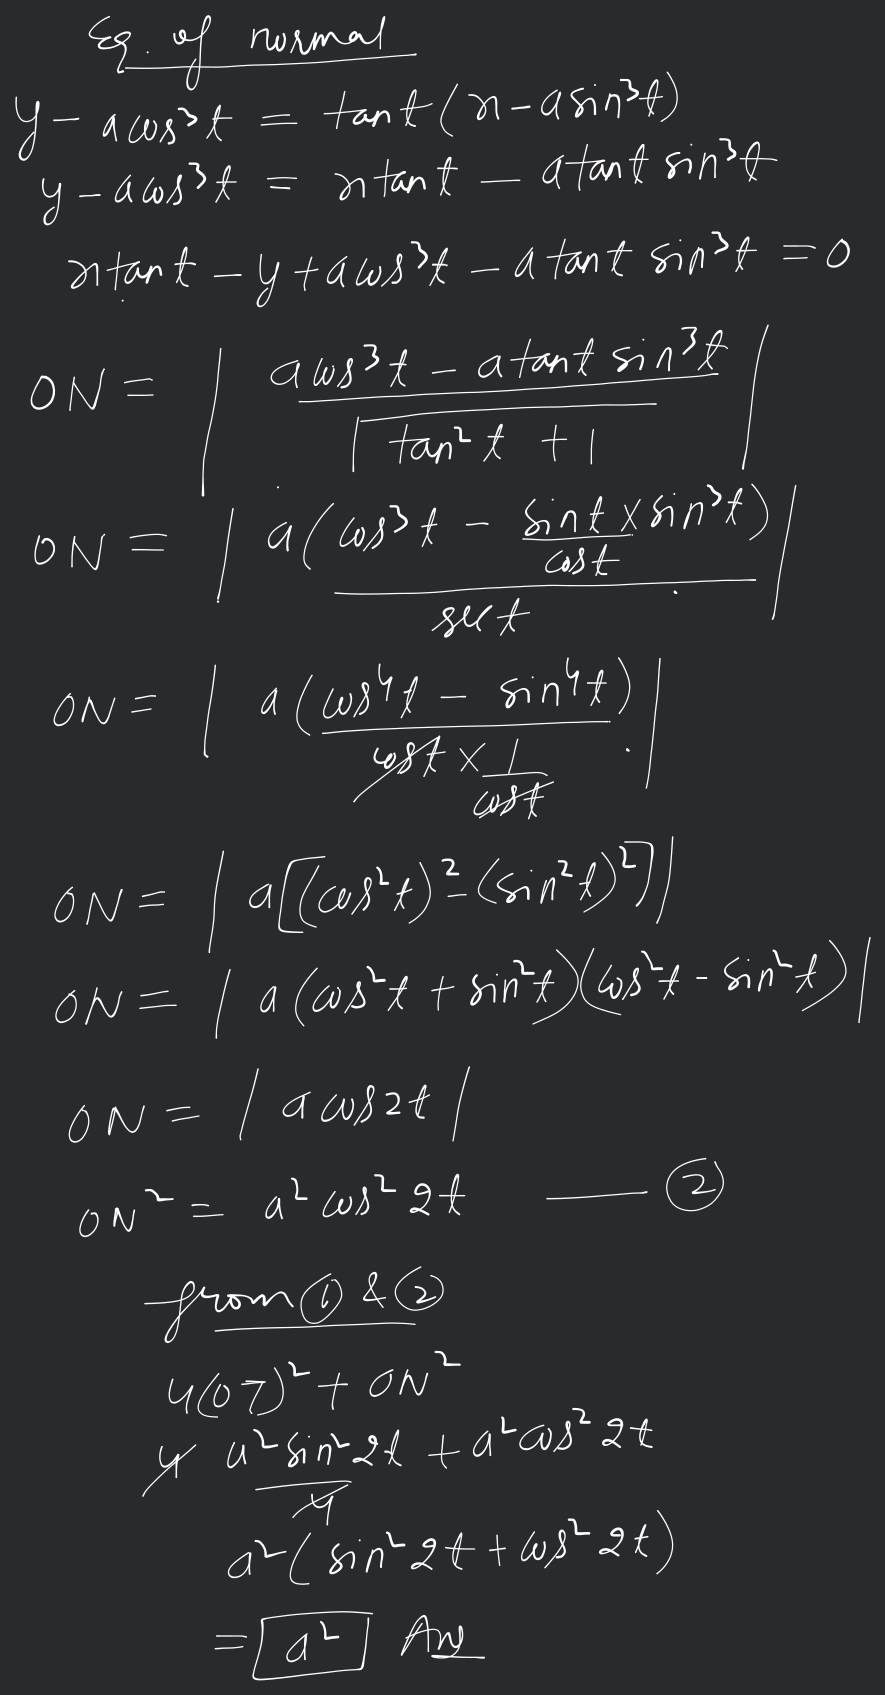 Eq. of normal
y - a cos³t = tan t (x - a sin³t)
y - a cos³t = x tan t - a tan t sin³t
x tan t - y + a cos³t - a tan t sin³t = 0
ON = | (a cos³t - a tan t sin³t) / √(tan²t + 1) |
ON = | a (cos³t - sin t/cos t × sin³t) / sec t |
ON = | a (cos⁴t - sin⁴t) / (cos t × 1/cos t) |
ON = | a [(cos²t)² - (sin²t)²] |
ON = | a (cos²t + sin²t)(cos²t - sin²t) |
ON = | a cos 2t |
ON² = a² cos² 2t —— ②
from ① & ②
4(OT)² + ON²
4 a² sin² 2t / 4 + a² cos² 2t
a² (sin² 2t + cos² 2t)
= a² Ans